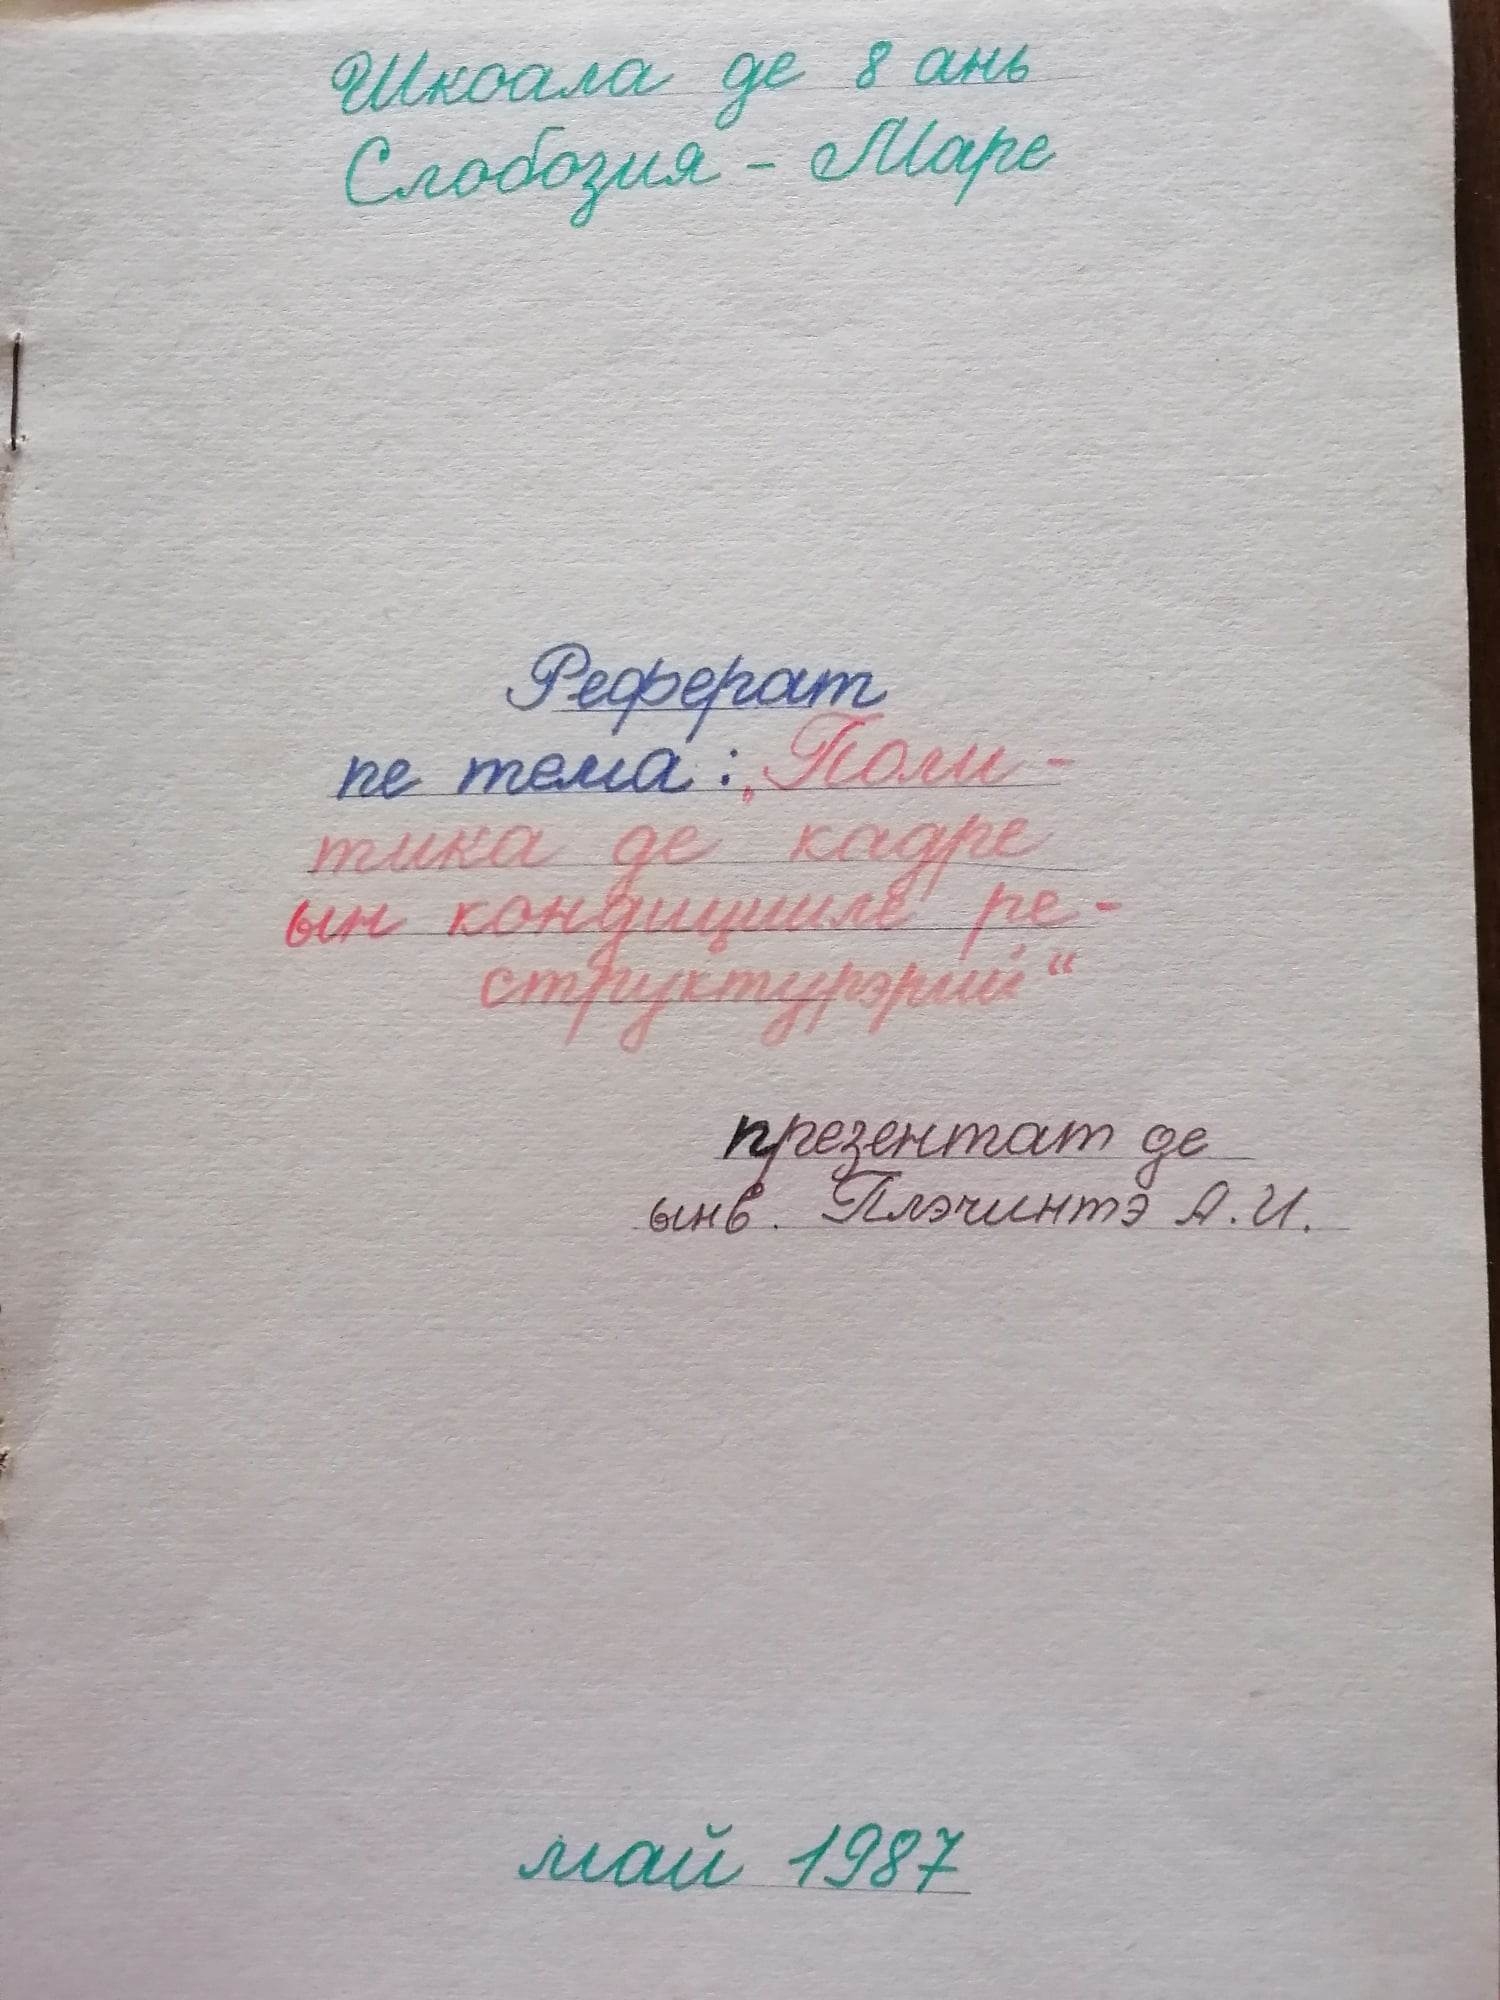 Школа де 8 ань
Слобозия - Маре
Реферат
пе тема: „Поли-
тика де кадре
ын кондицииле ре-
структурэрий“
презентат де
ынв. Плэчинтэ А.И.
май 1987